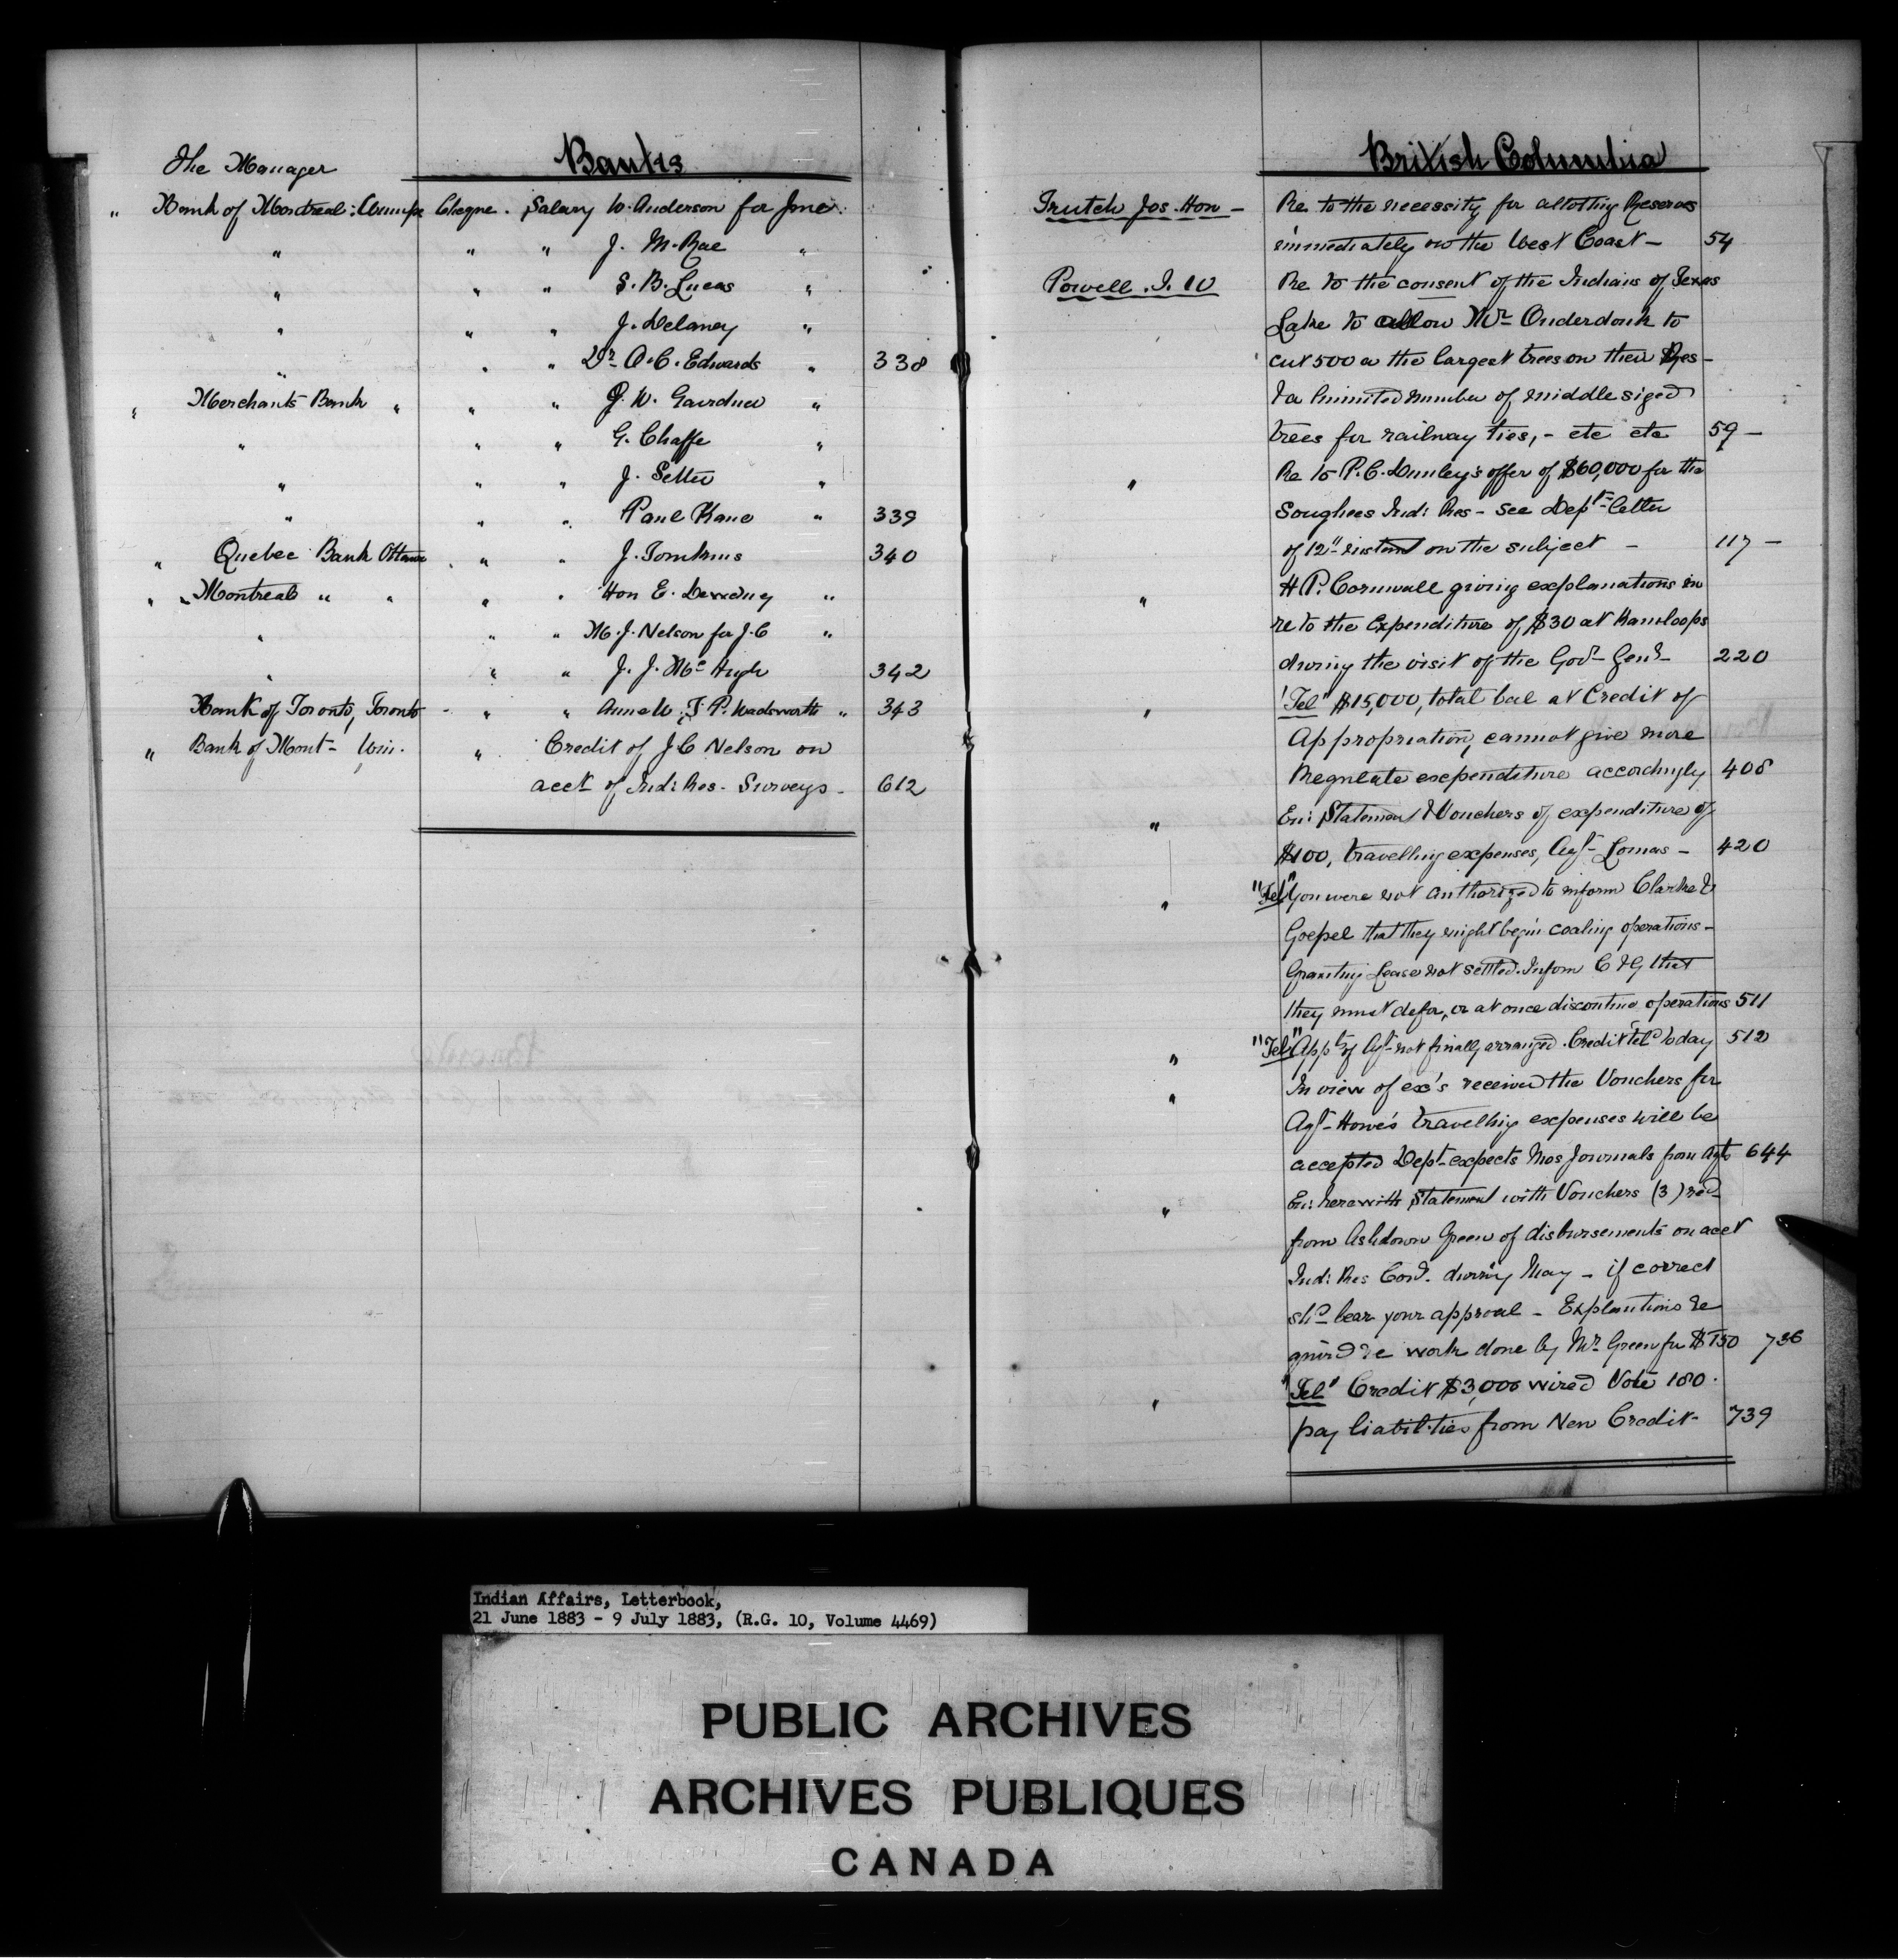 The Manager
Banks
" Bank of Montreal: Winnipe Cheque. Salary W. Anderson for June.
" " " J. McRae "
" " " S. B. Lucas "
" " " J. Delaney "
" " " Dr O. C. Edwards " 338
" Merchants Bank " " " J. W. Gairdner "
" " " G. Chaffe "
" " " J. Setter "
" " " Paul Kane " 339
" Quebec Bank Ottawa " " J. Tomkins 340
" " Montreal " " " " Hon E. Dewdney "
" " " M. J. Nelson for J. C "
" " " J. J. McHugh 342
Bank of Toronto, Toronto - " " Anne W. T. P. Wadsworth " 343
" Bank of Mont- Win. " Credit of J. C Nelson on
acct of Ind: Res. Surveys. 612
British Columbia
Trutch Jos. Hon - Re to the necessity for allotting Reserves
immediately on the West Coast - 54
Powell. I. W Re to the consent of the Indians of Texas
Lake to allow Mr Onderdonk to
cut 500 a the largest trees on their Res -
& a limited number of middle sized
trees for railway ties, - etc etc 59 -
" Re to P. C. Dunlevy's offer of $60,000 for the
Songhees Ind: Res - see Dept- letter
of 12" instant on the subject - 117 -
" H P. Cornwall giving explanations in
re to the Expenditure of $30 at Kamloops
during the visit of the Gov- Genl- 220
" "Tel" $15,000, total bal at Credit of
Appropriation, cannot give more
Regulate expenditure accordingly 408
" En: Statement & Vouchers of expenditure of
$100, travelling expenses, Agt- Lomas - 420
" "Tel" You were not authorized to inform Clarke &
Goepel that they might begin coaling operations -
Granting Lease not settled. Inform C & G that
they must defer, or at once discontinue operations 511
" "Tel" Appt of Agt- not finally arranged. Credit Tel'd today 512
" In view of ex's received the Vouchers for
Agt- Howe's travelling expenses will be
accepted Dept- expects Mos Journals from Agts 644
" En: herewith Statement with Vouchers (3) recd
from Ashdown Green of disbursements on acct
Ind: Res Comn. during May - if correct
shd bear your approval - Explantions re
quird re work done by Mr Green for $150 736
" "Tel" Credit $3,000 wired Vote 180.
pay liabilities from New Credit- 739
Indian Affairs, Letterbook,
21 June 1883 - 9 July 1883, (R.G. 10, Volume 4469)
PUBLIC ARCHIVES
ARCHIVES PUBLIQUES
CANADA